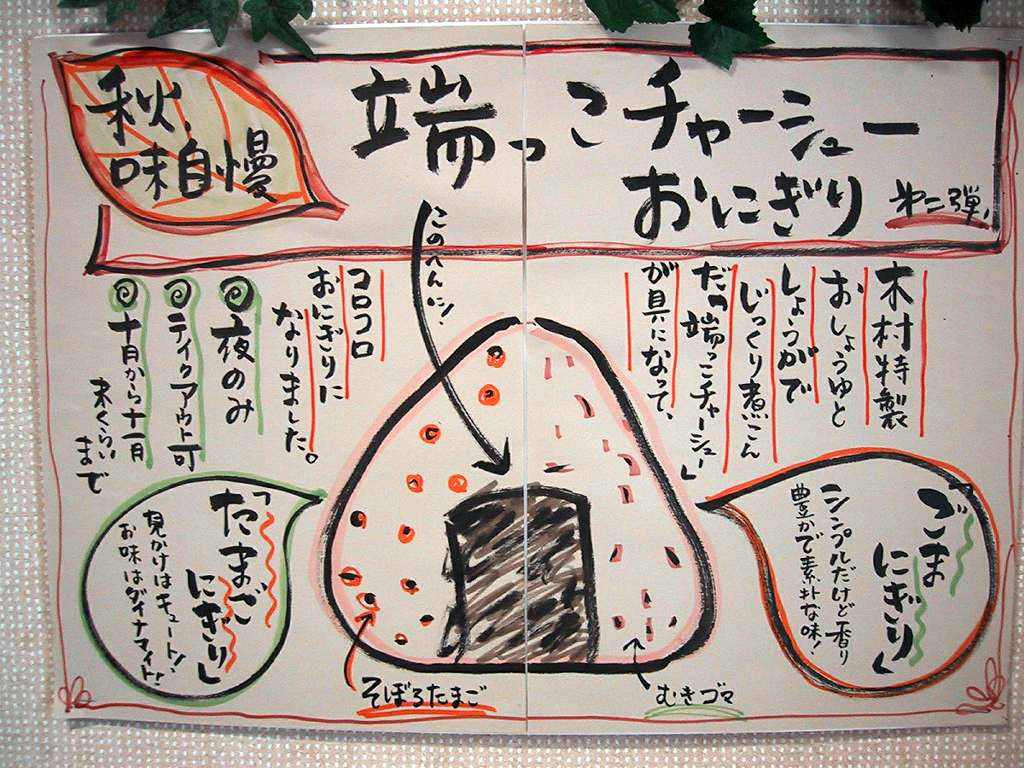 秋、
味自慢
端っこチャーシュー
おにぎり
第二弾、
木村特製
おしょうゆと
しょうがで
じっくり煮こん
だ「端っこチャーシュー」
が具になって、
このへんに!
コロコロ
おにぎりに
なりました。
◎夜のみ
◎ティクアウト可
◎十月から十一月
末くらい
まで
「ごま
にぎり」
シンプルだけど香り
豊かで素朴な味!
「たまご
にぎり」
見かけはキュート!
お味はダイナマイト!
そぼろたまご
むきゴマ